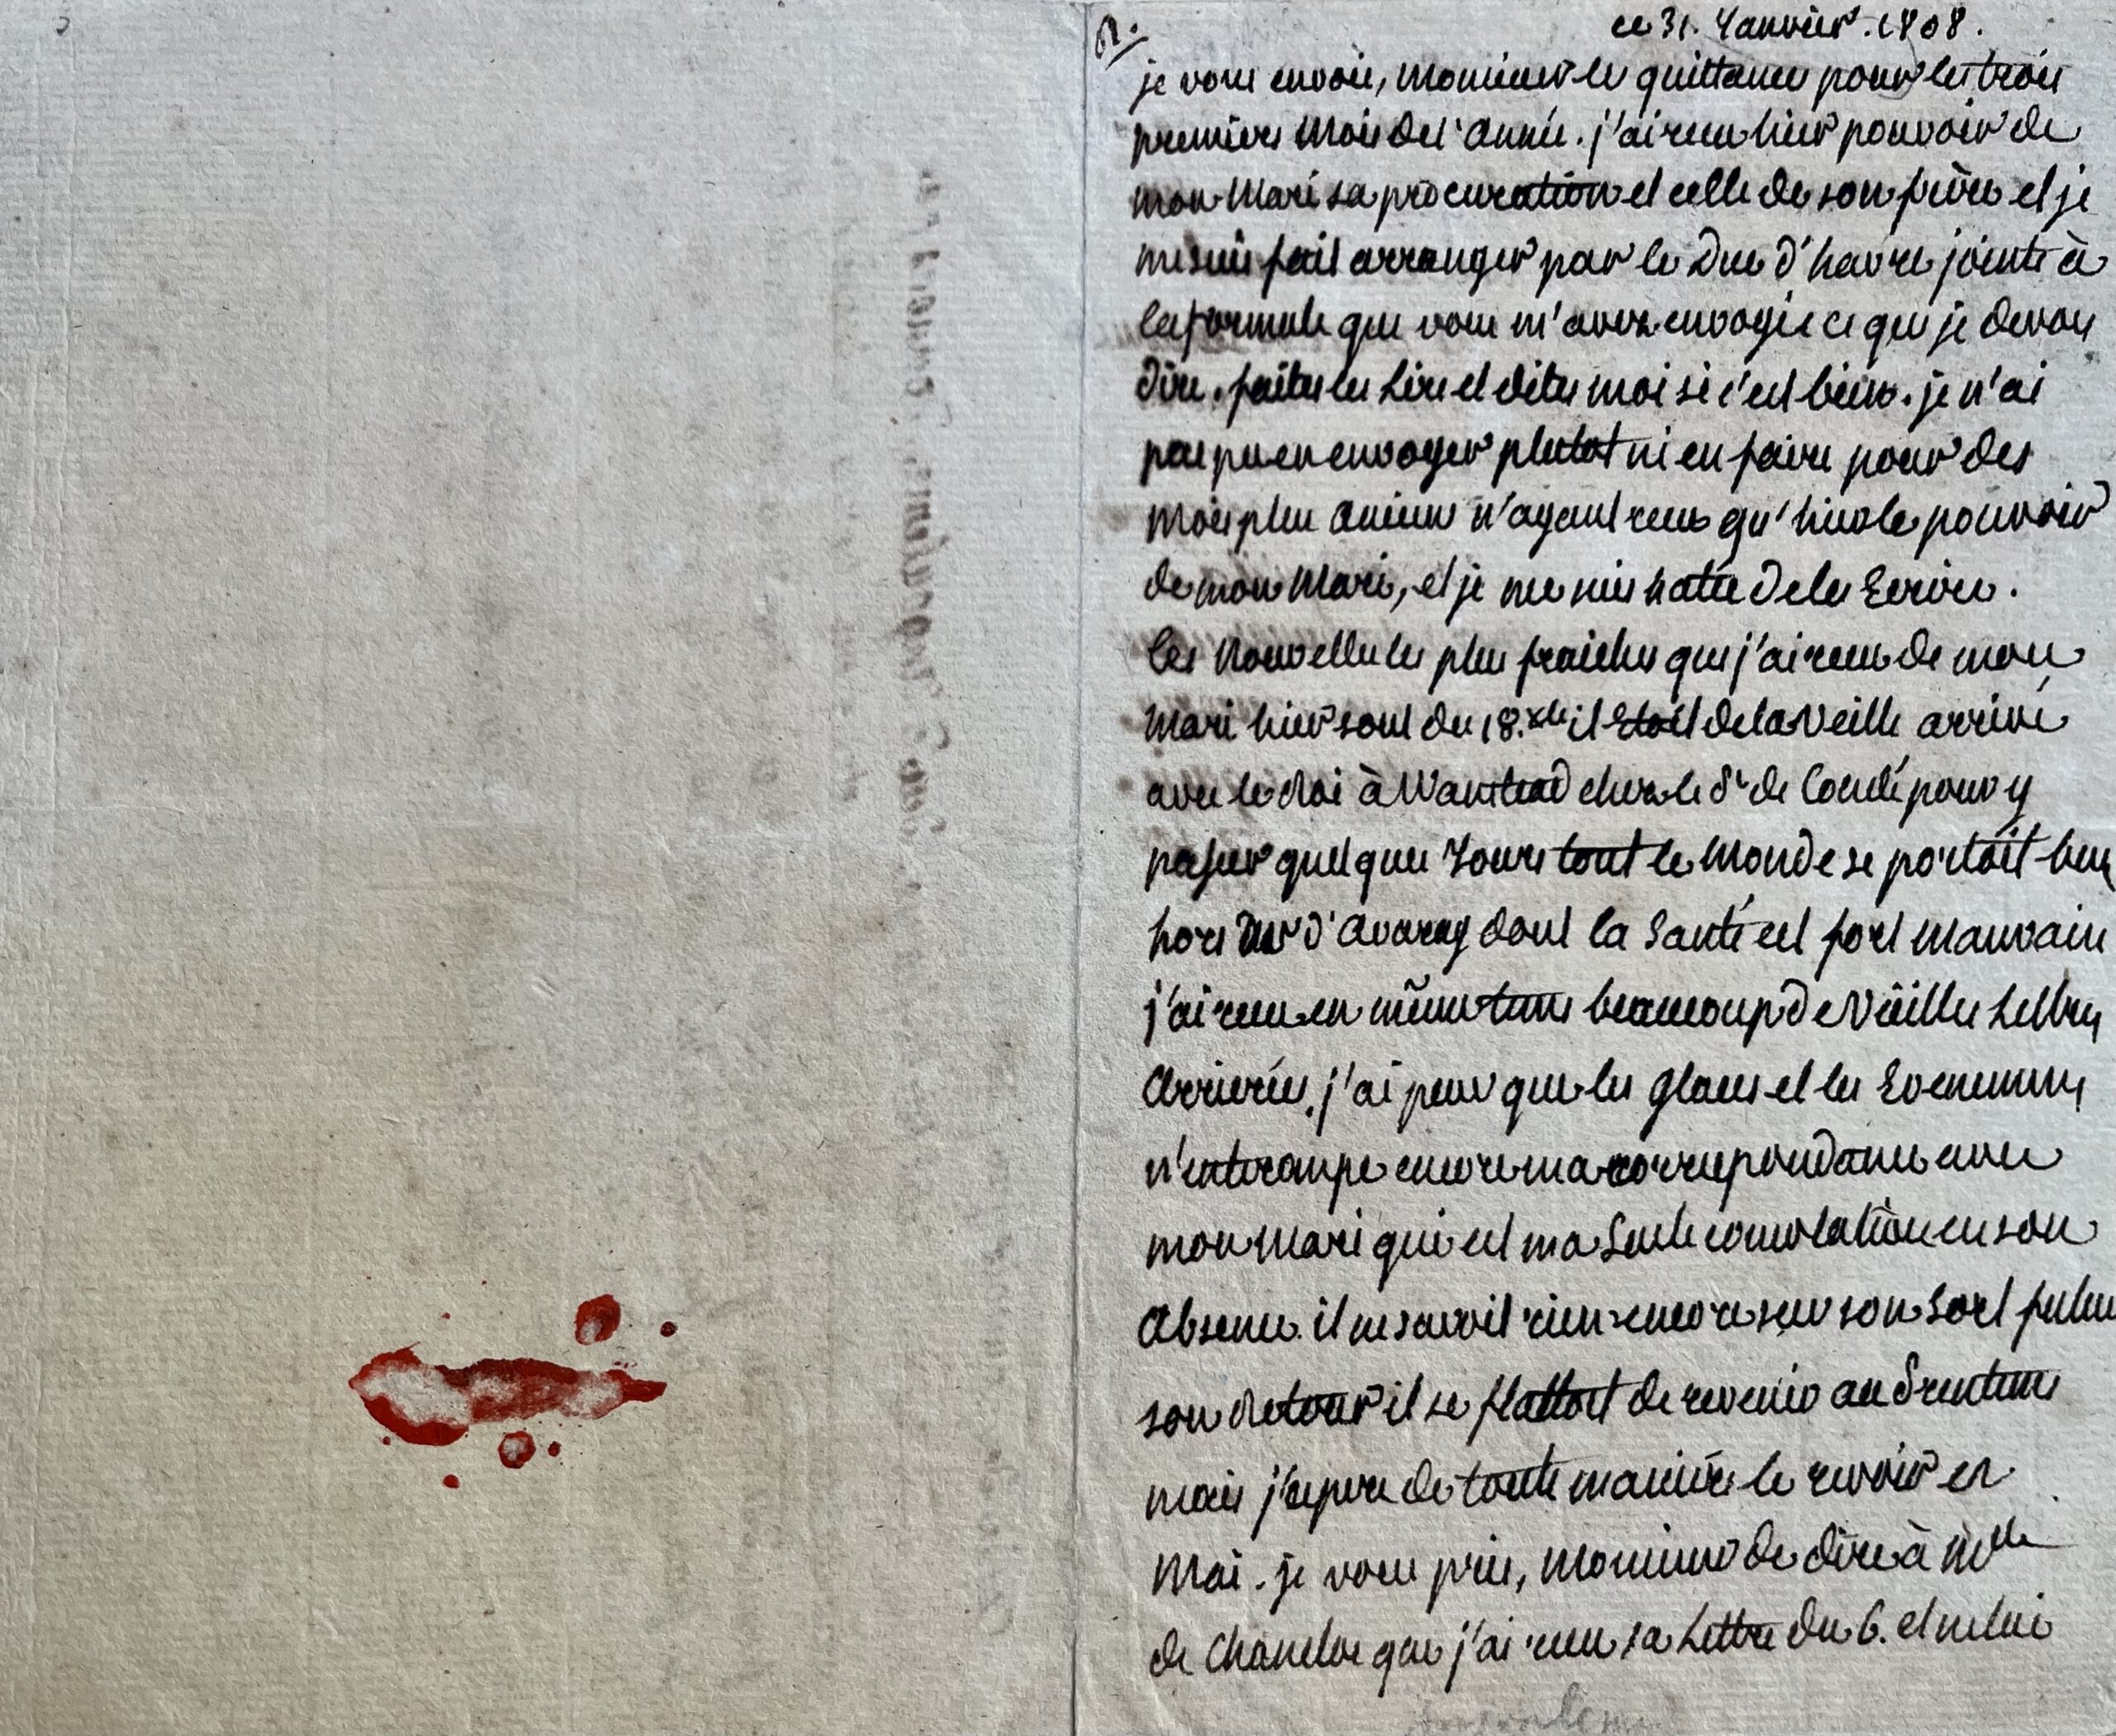 R.
ce 31. Janvier. 1808.
je vous envoie, monsieur les quittances pour les trois
premiers mois de l'année. j'ai reçu hier pouvoir de
mon mari sa procuration et celle de son frère et je
me suis fait arranger par le Duc d'havré jointe à
la formule que vous m'avez envoyée ce que je devois
dire. faites les Lire et dites moi si c'est bien. je n'ai
pas pu en envoyer plutot ni en faire pour des
mois plus anciens n'ayant recu qu'hier le pouvoir
de mon mari, et je me suis hatée de les Ecrire.
les Nouvelles les plus fraiches que j'ai recu de mon
mari hier sont du 18. xbre il Etoit de la Veille arrivé
avec le Roi à Wanstead chez le Pce de Condé pour y
passer quelques Jours tout le monde se portoit bien
hors d'avaray dont la Santé est fort mauvaise
j'ai recu en même tems beaucoup de Vieilles Lettres
Arrierées. j'ai peur que les glaces et les Evenemens
n'interompe encore ma correspondance avec
mon mari qui est ma Seule consolation en son
Absence. il ne savoit rien encore sur son Sort futur
son Retour il se flattoit de revenir au Printems
mais j'espere de toute maniere le revoir en
Mai. je vous prie, monsieur de dire à Melle
de Choiseul que j'ai recu sa Lettre du 6. et ne lui